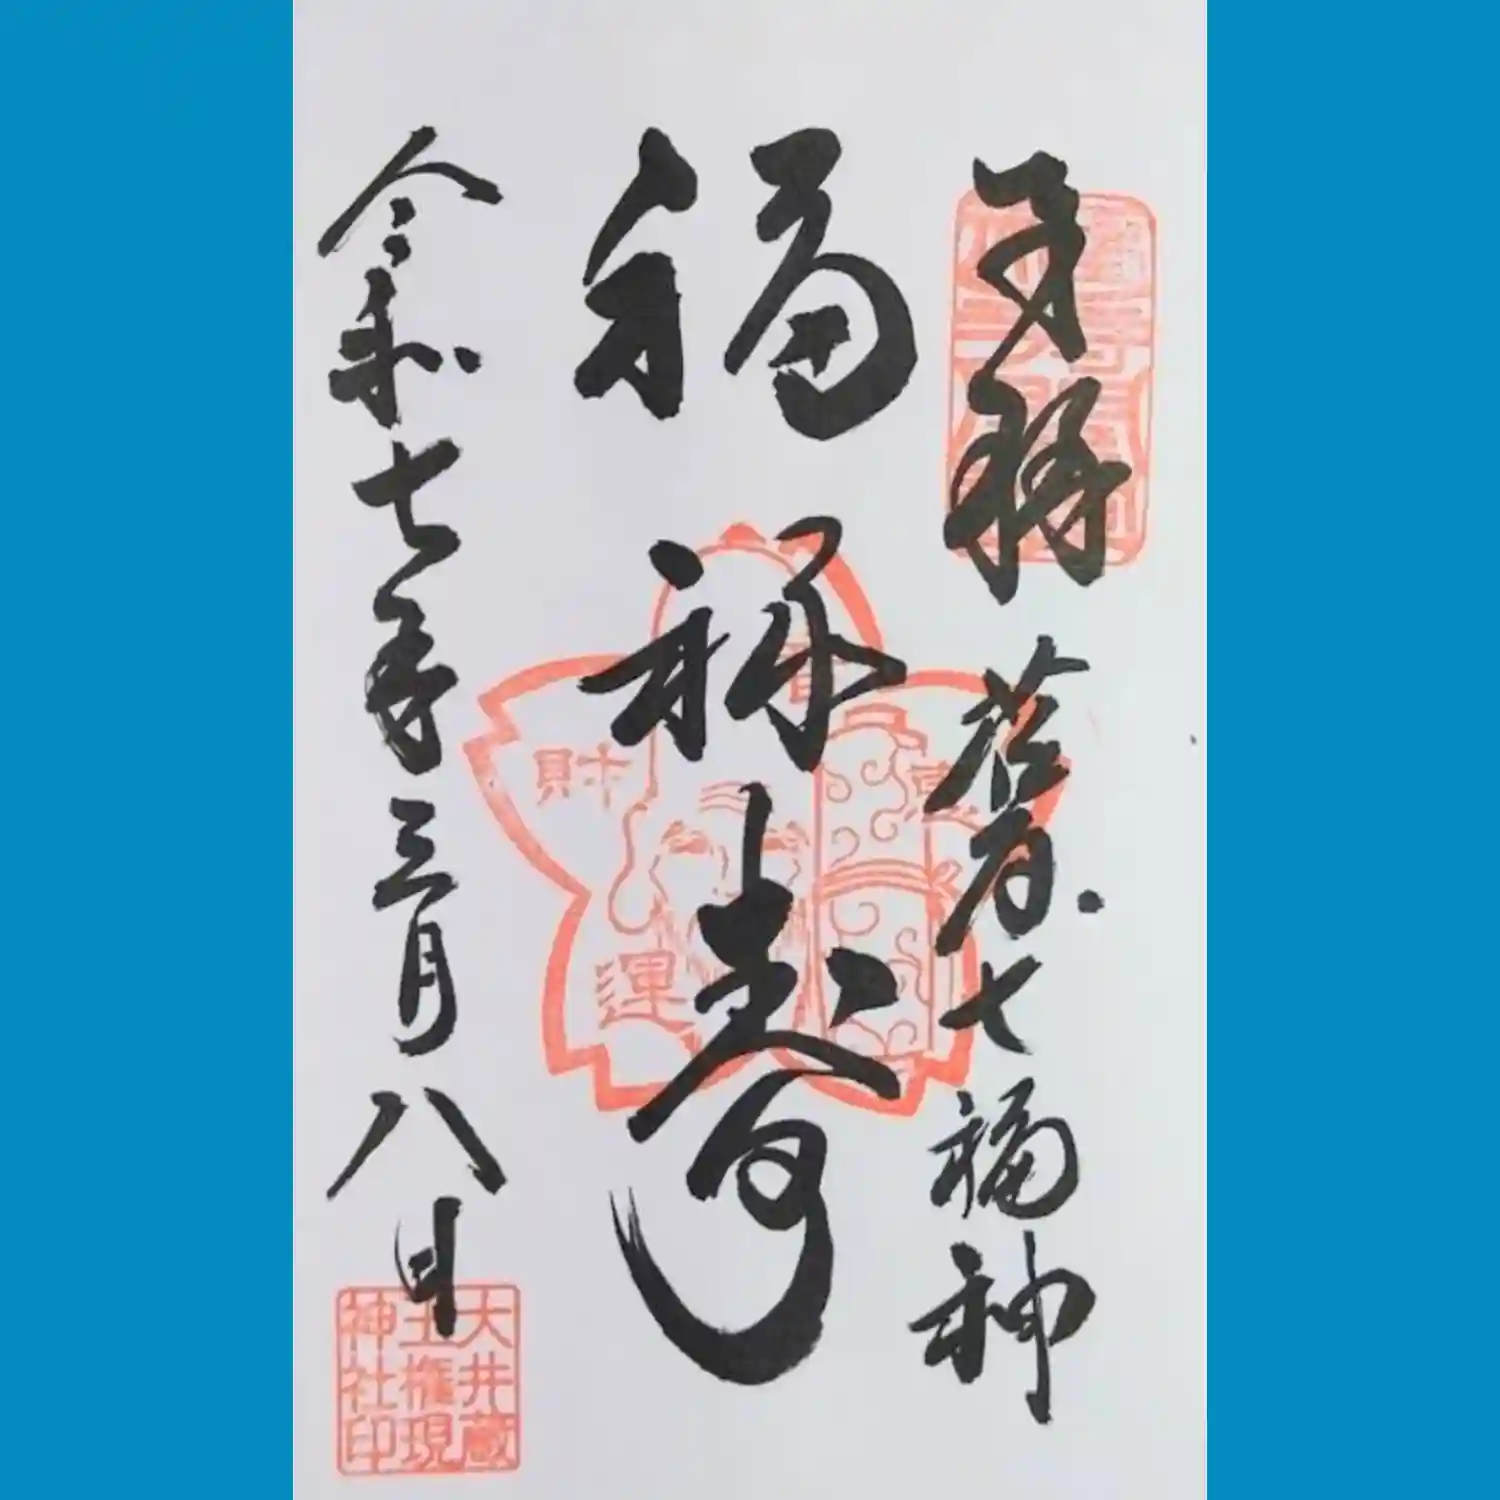 奉拝
荏原七福神
福禄寿
財
運
令和七年三月八日
大井蔵
王権現
神社印